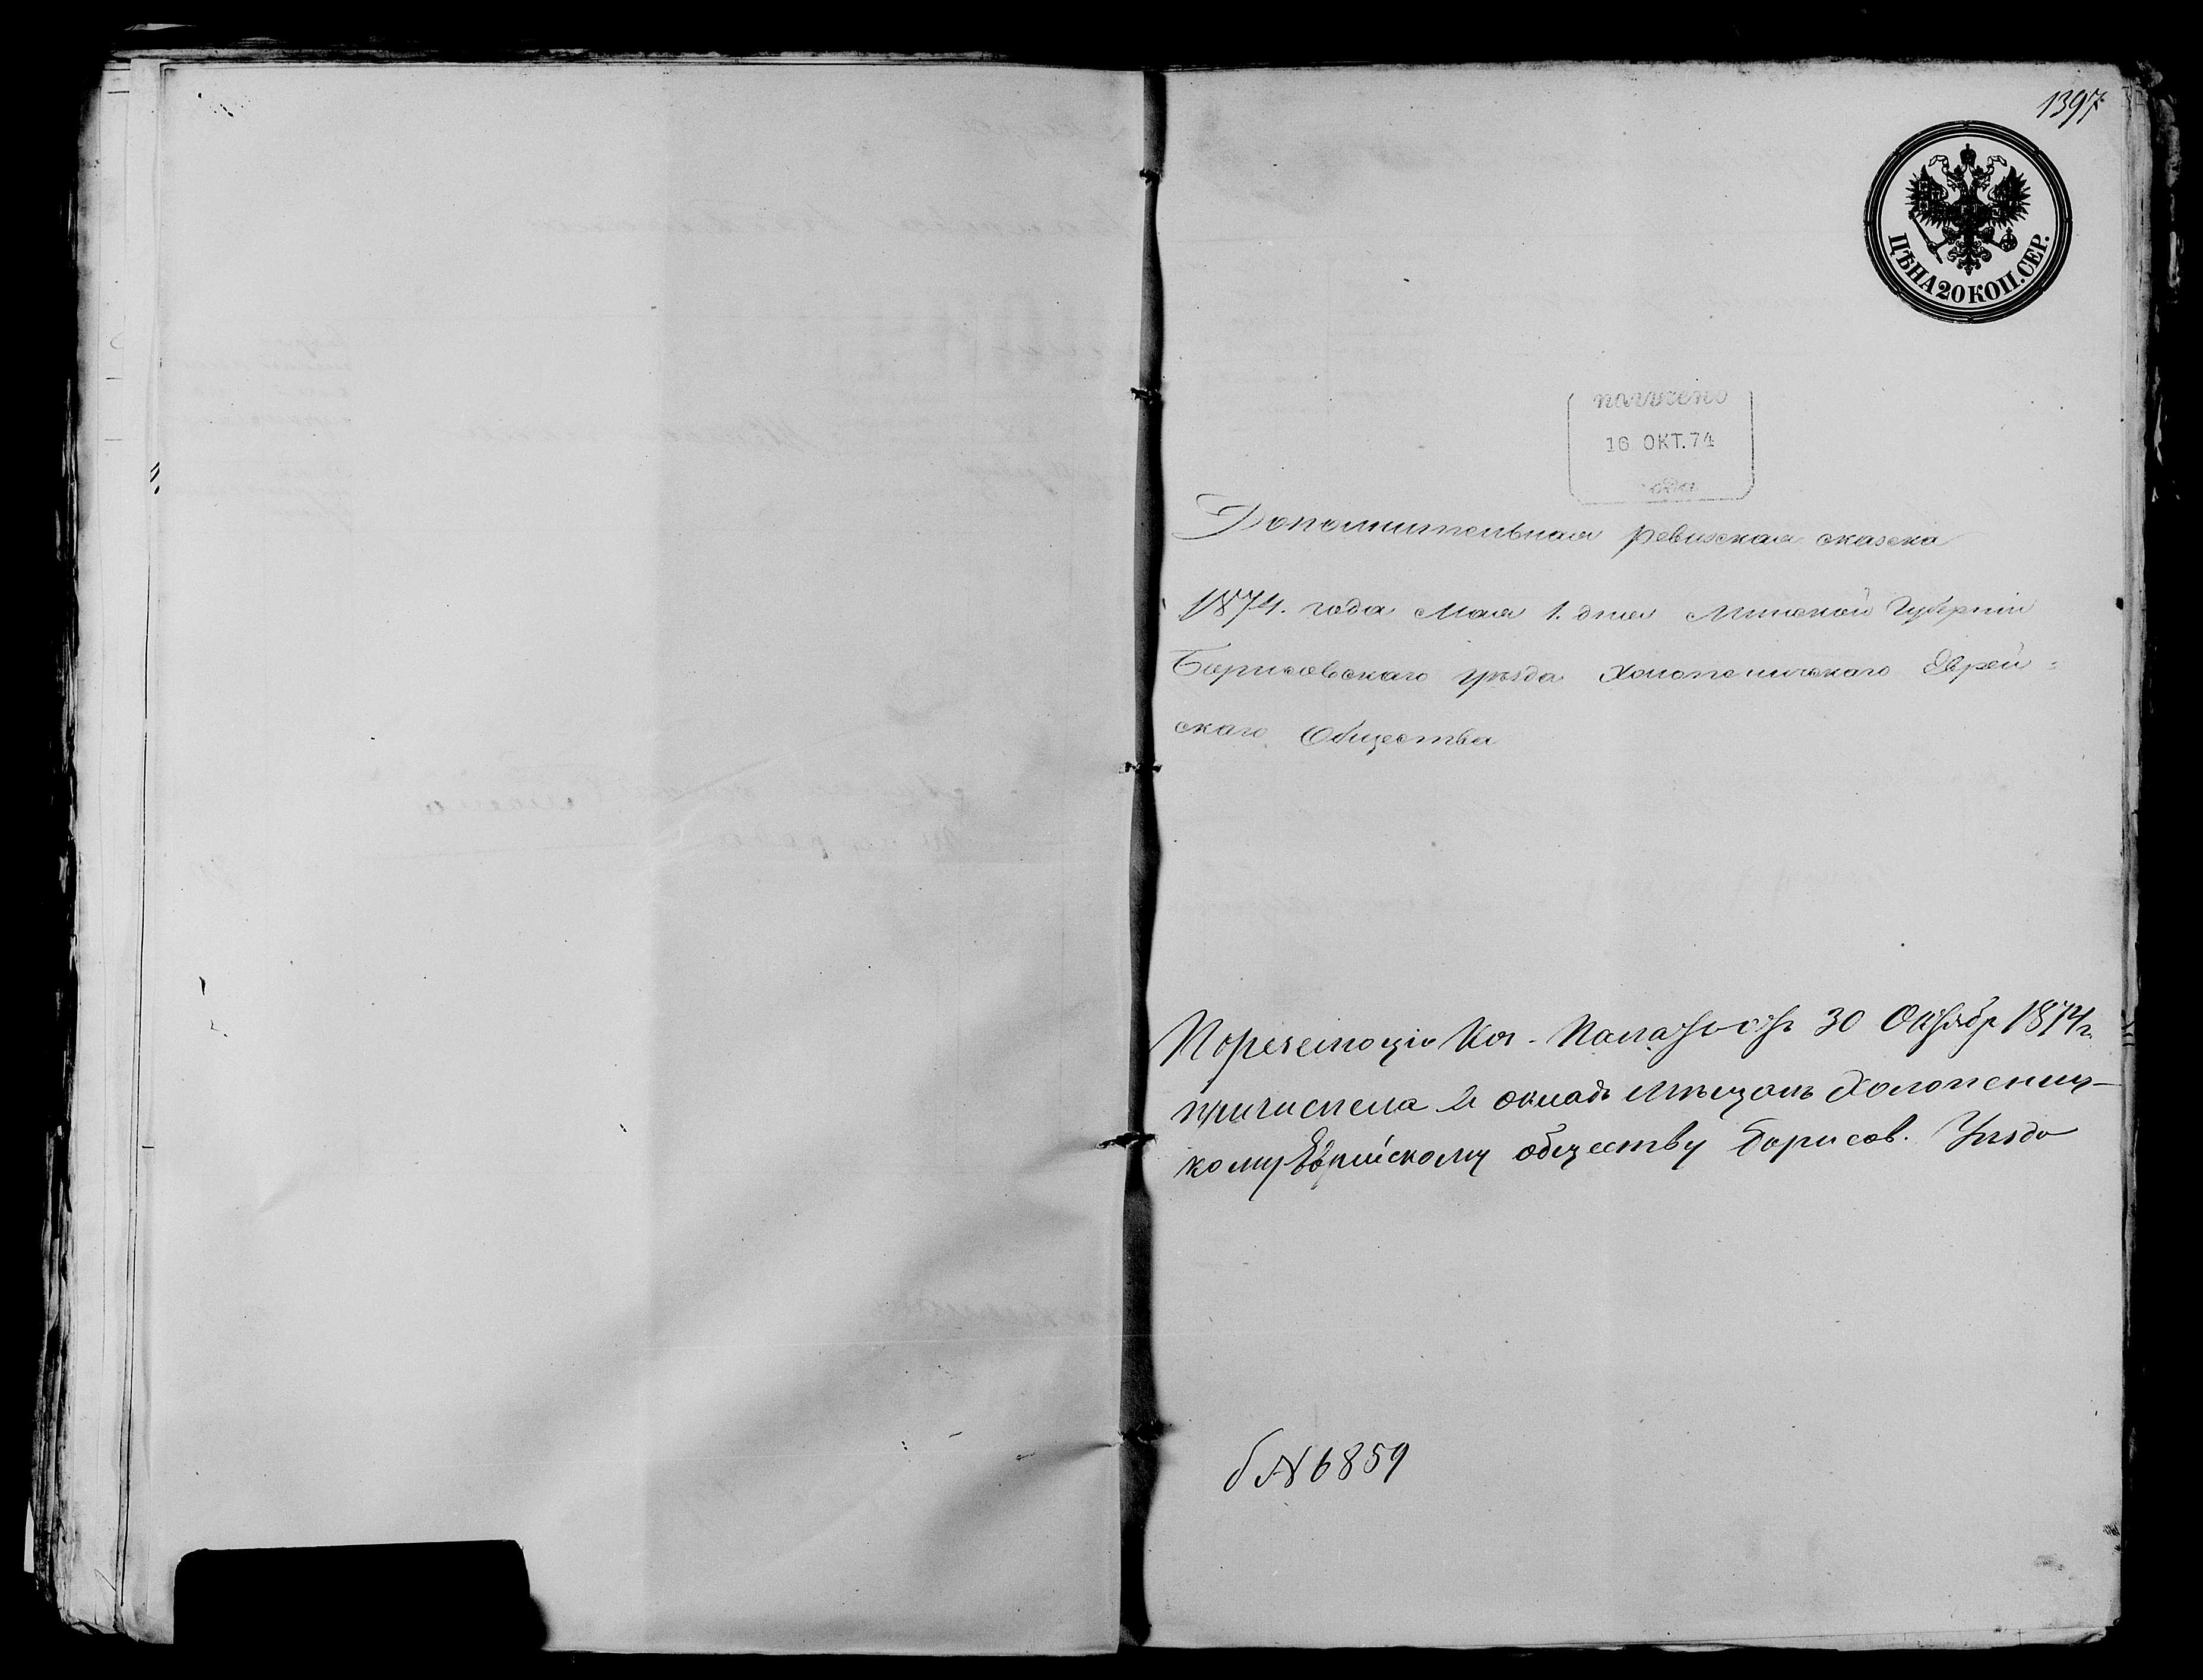 1397
ЦѢНА 20 КОП. СЕР.
получено
16 ОКТ. 74
года
Дополнительная ревизская сказска
1874. года Мая 1. дня Минской Губерніи
Борисовскаго уѣзда Холопеничскаго Еврей=
скаго Общества
По резолюціи Каз. Палаты 30 Октябр 1874 г.
причислена въ окладъ мѣщанъ Холопенич-
кому Еврейскому обществу Борисов. Уѣзда
№ 6859